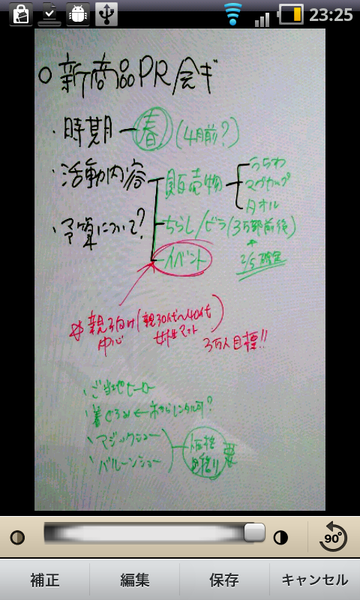 23:25
○ 新商品PR会ギ
・時期 ー 春 (4月前?)
・活動内容
販売物
うちわ
マグカップ
タオル
・予算について?
ちらし/ビラ (3万部前後)
2/5確定
イベント
※親子向け (親30代〜40代
中心 女性マスト)
3万人目標!!
・ご当地ヒーロー
・着ぐるみ ←
・マジックショー
・バルーンショー
価格
見積り 要
90°
補正
編集
保存
キャンセル